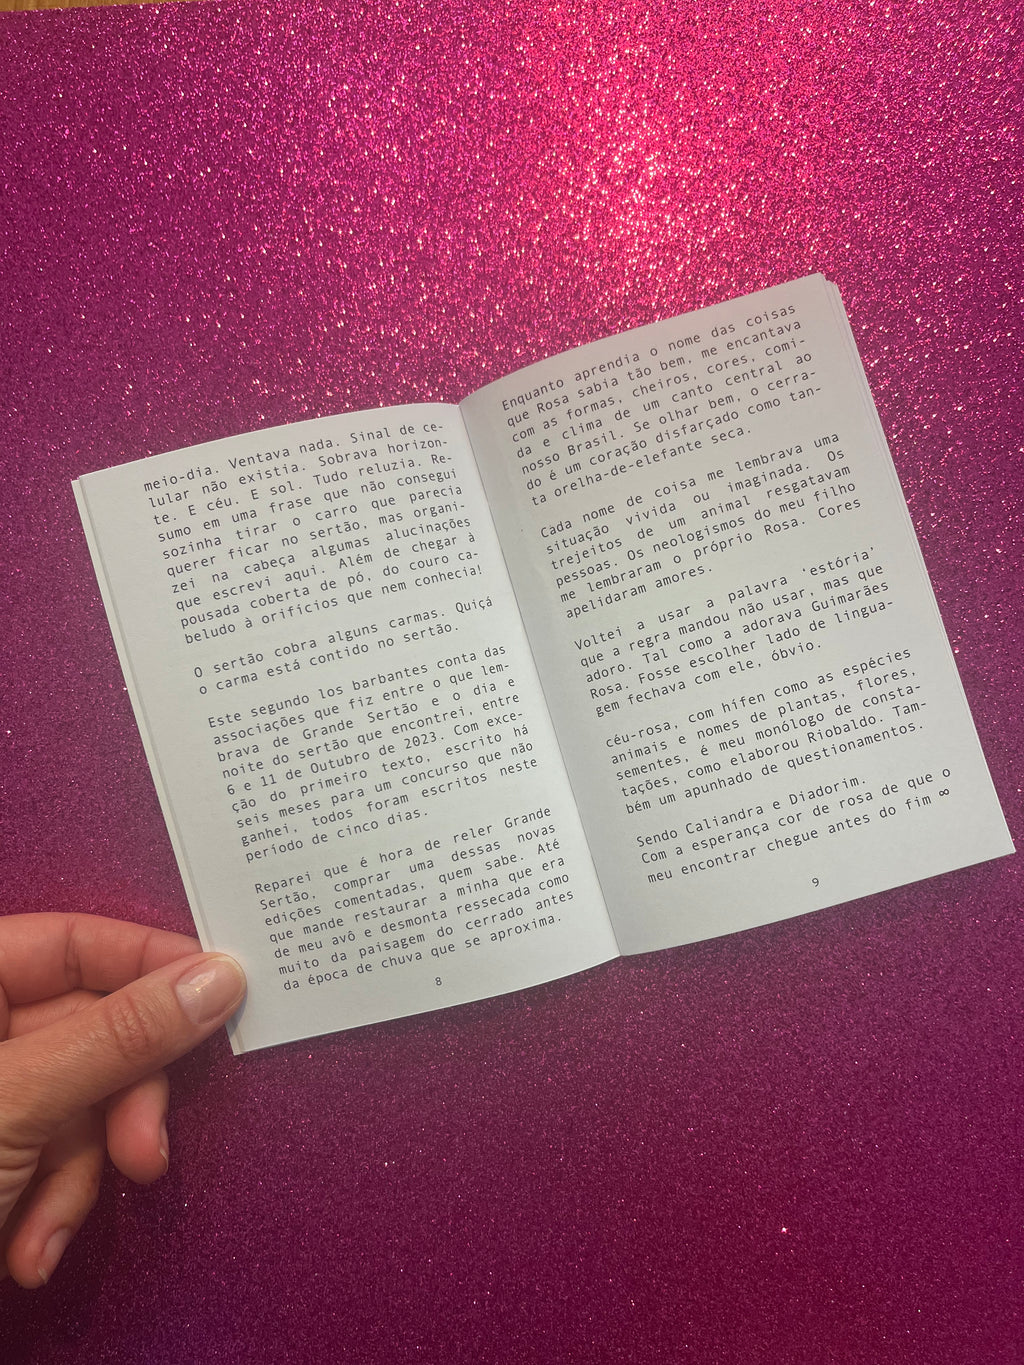 meio-dia. Ventava nada. Sinal de ce-
lular não existia. Sobrava horizon-
te. E céu. E sol. Tudo reluzia. Re-
sumo em uma frase que não consegui
sozinha tirar o carro que parecia
querer ficar no sertão, mas organi-
zei na cabeça algumas alucinações
que escrevi aqui. Além de chegar à
pousada coberta de pó, do couro ca-
beludo à orifícios que nem conhecia!
O sertão cobra alguns carmas. Quiçá
o carma está contido no sertão.
Este segundo los barbantes conta das
associações que fiz entre o que lem-
brava de Grande Sertão e o dia e
noite do sertão que encontrei, entre
6 e 11 de Outubro de 2023. Com exce-
ção do primeiro texto, escrito há
seis meses para um concurso que não
ganhei, todos foram escritos neste
período de cinco dias.
Reparei que é hora de reler Grande
Sertão, comprar uma dessas novas
edições comentadas, quem sabe. Até
que mande restaurar a minha que era
de meu avô e desmonta ressecada como
muito da paisagem do cerrado antes
da época de chuva que se aproxima.
8
Enquanto aprendia o nome das coisas
que Rosa sabia tão bem, me encantava
com as formas, cheiros, cores, comi-
da e clima de um canto central ao
nosso Brasil. Se olhar bem, o cerra-
do é um coração disfarçado como tan-
ta orelha-de-elefante seca.
Cada nome de coisa me lembrava uma
situação vivida ou imaginada. Os
trejeitos de um animal resgatavam
pessoas. Os neologismos do meu filho
me lembraram o próprio Rosa. Cores
apelidaram amores.
Voltei a usar a palavra ‘estória’
que a regra mandou não usar, mas que
adoro. Tal como a adorava Guimarães
Rosa. Fosse escolher lado de lingua-
gem fechava com ele, óbvio.
céu-rosa, com hífen como as espécies
animais e nomes de plantas, flores,
sementes, é meu monólogo de consta-
tações, como elaborou Riobaldo. Tam-
bém um apunhado de questionamentos.
Sendo Caliandra e Diadorim.
Com a esperança cor de rosa de que o
meu encontrar chegue antes do fim ∞
9